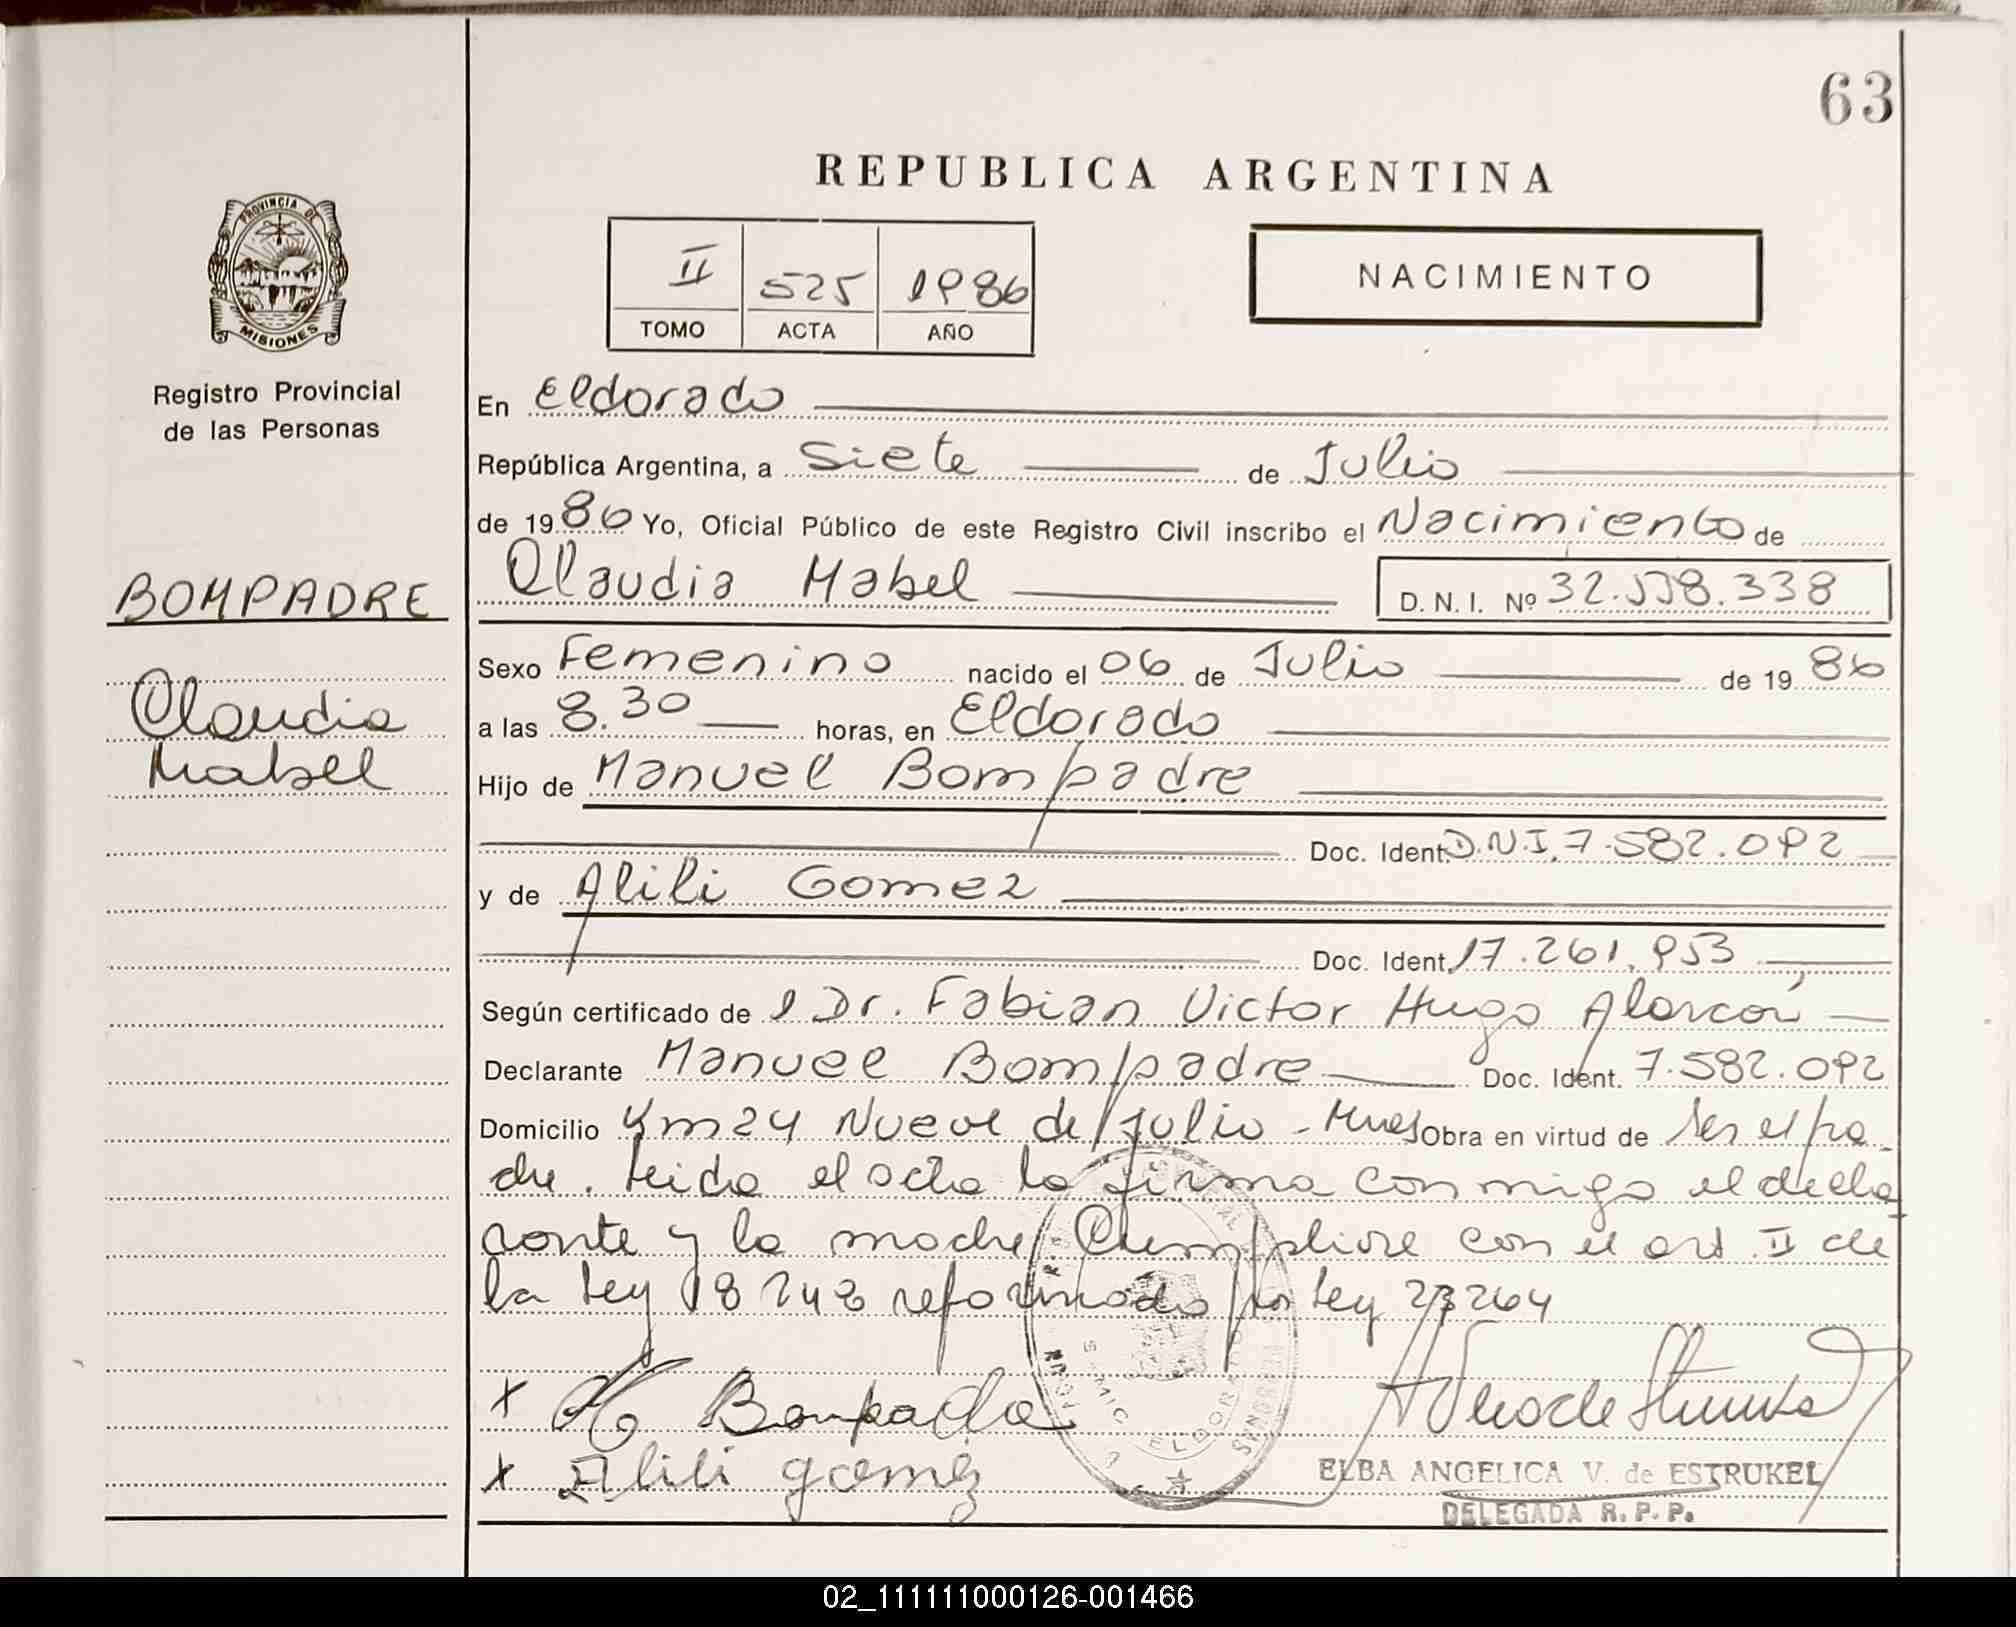 63
REPUBLICA ARGENTINA
PROVINCIA DE
MISIONES
Registro Provincial
de las Personas
II 525 1986
TOMO ACTA AÑO
NACIMIENTO
BOMPADRE
Claudia
Mabel
En Eldorado
República Argentina, a Siete de Julio
de 1986 Yo, Oficial Público de este Registro Civil inscribo el Nacimiento de
Claudia Mabel D. N. I. Nº 32.558.338
Sexo Femenino nacido el 06 de Julio de 1986
a las 8.30 horas, en Eldorado
Hijo de Manuel Bompadre
Doc. Ident. D.N.I. 7.582.092
y de Alili Gomez
Doc. Ident. 17.261.953
Según certificado de l Dr. Fabian Victor Hugo Alarcón
Declarante Manuel Bompadre Doc. Ident. 7.582.092
Domicilio Km 24 Nueve de Julio - Mnes Obra en virtud de ser el pa
dre. Leida el acta la firma conmigo el decla
rante y la madre. Cumpliose con el art. II de
la Ley 18248 reformada por Ley 23264
x Bompadre
x Alili gomez
ELDORADO
ELBA ANGELICA V. de ESTRUKEL
DELEGADA R. P. P.
02_111111000126-001466